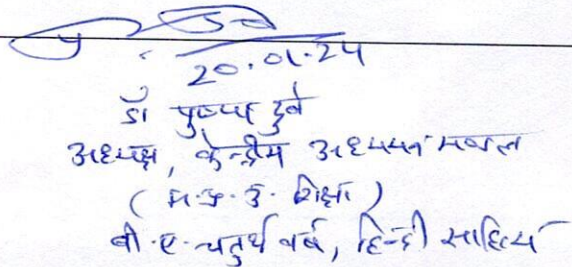 20.01.24
डॉ पुष्पा दुबे
अध्यक्ष, केन्द्रीय अध्ययन मण्डल
(म.प्र. उ. शिक्षा)
बी.ए. चतुर्थ वर्ष, हिन्दी साहित्य